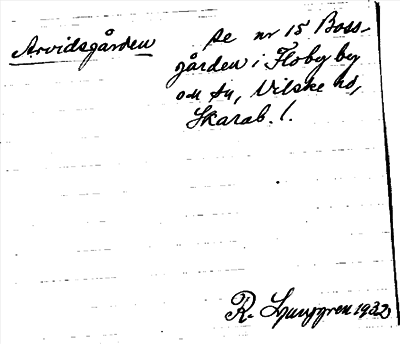 Arvidsgården
se nr 15 Boss-
gården i Floby by
och sn, Vilske hd,
Skarab. l.
R. Ljunggren 1932